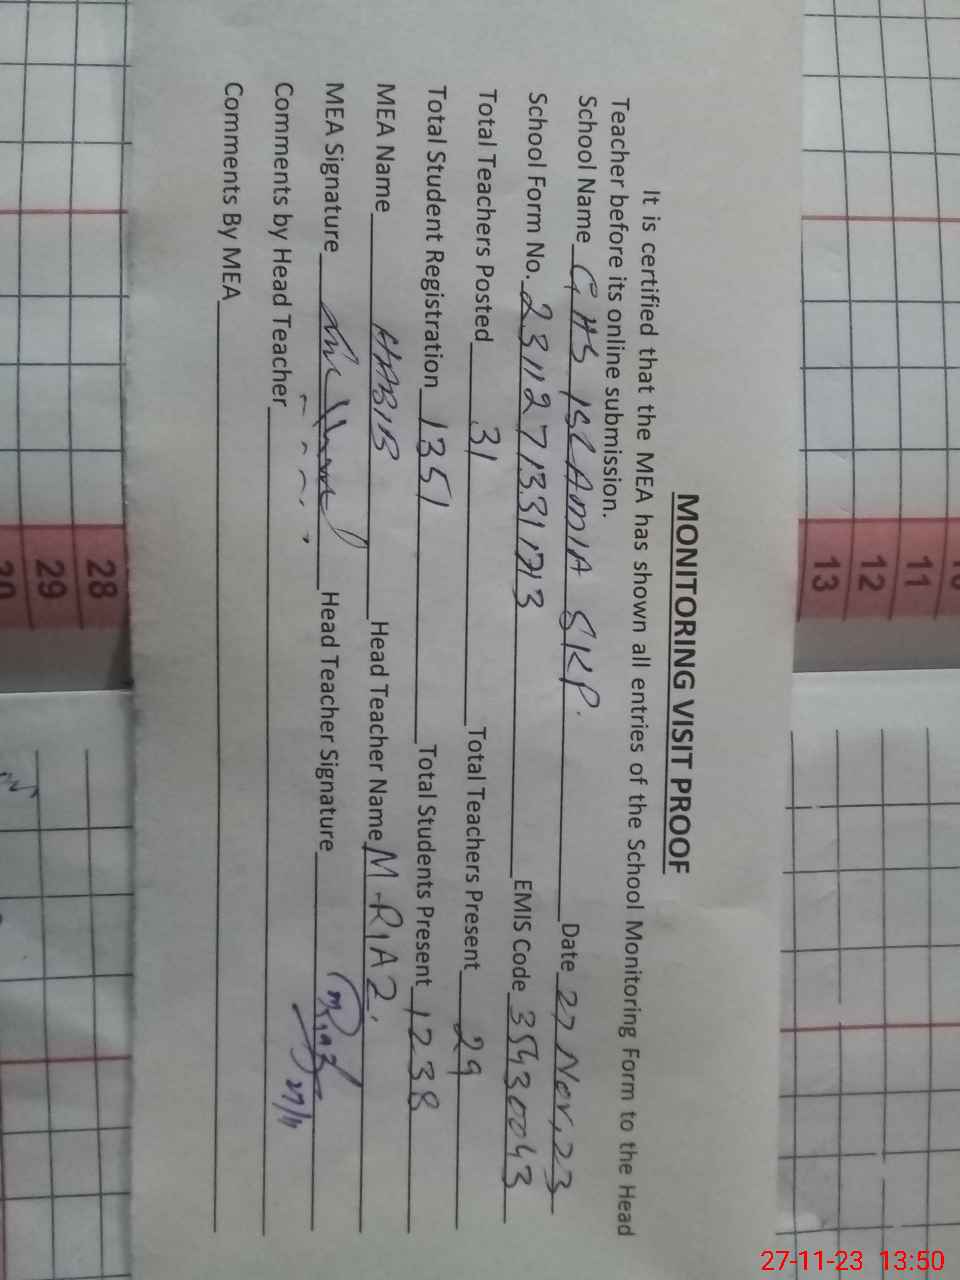 MONITORING VISIT PROOF
It is certified that the MEA has shown all entries of the School Monitoring Form to the Head
Teacher before its online submission.
School Name GHS ISLAMIA SKP. Date 27 Nov, 23
School Form No. EMIS Code 35430043
Total Teachers Posted 31 Total Teachers Present 29
Total Student Registration 1351 Total Students Present 1238
MEA Name HABIB Head Teacher Name M. RIAZ.
MEA Signature Head Teacher Signature MRiaz
27/11
Comments by Head Teacher
Comments By MEA
10
11
12
13
28
29
30
27-11-23 13:50